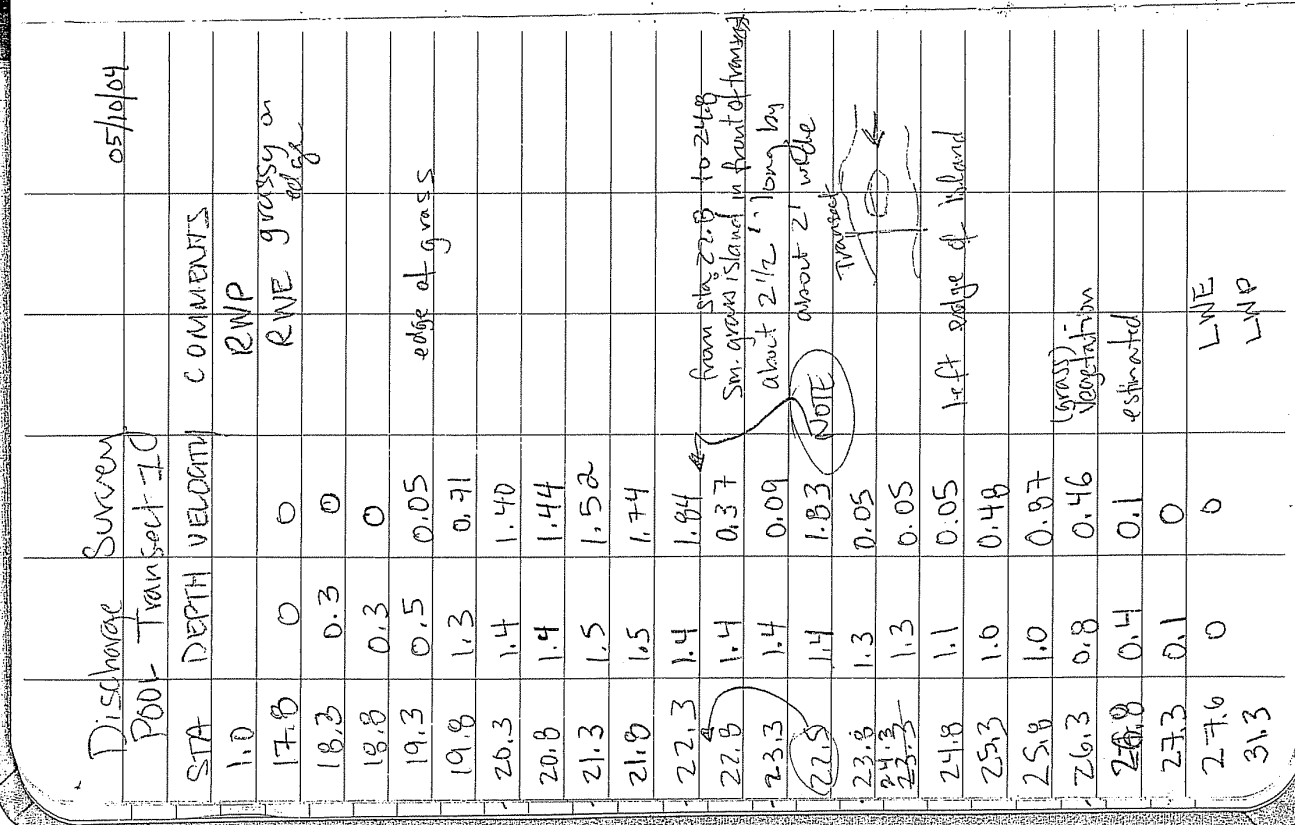 Discharge Survey 05/10/04
POOL Transect 10
STA DEPTH VELOCITY COMMENTS
1.0 RWP
17.8 0 0 RWE grassy on edge
18.3 0.3 0
18.8 0.3 0
19.3 0.5 0.05 edge of grass
19.8 1.3 0.71
20.3 1.4 1.40
20.8 1.4 1.44
21.3 1.5 1.52
21.8 1.5 1.74
22.3 1.4 1.84 from sta. 22.8 to 24.8
22.8 1.4 0.37 Sm. grass island in front of transect
23.3 1.4 0.09 about 2 1/2' long by
22.5 1.4 1.83 NOTE about 2' wide
23.8 1.3 0.05 Transect
24.3 23.3 1.3 0.05
24.8 1.1 0.05 left edge of island
25.3 1.0 0.48
25.8 1.0 0.87
26.3 0.8 0.46 (grass) vegetation
26.8 0.4 0.1 estimated
27.3 0.1 0
27.6 0 0 LWE
31.3 LWP